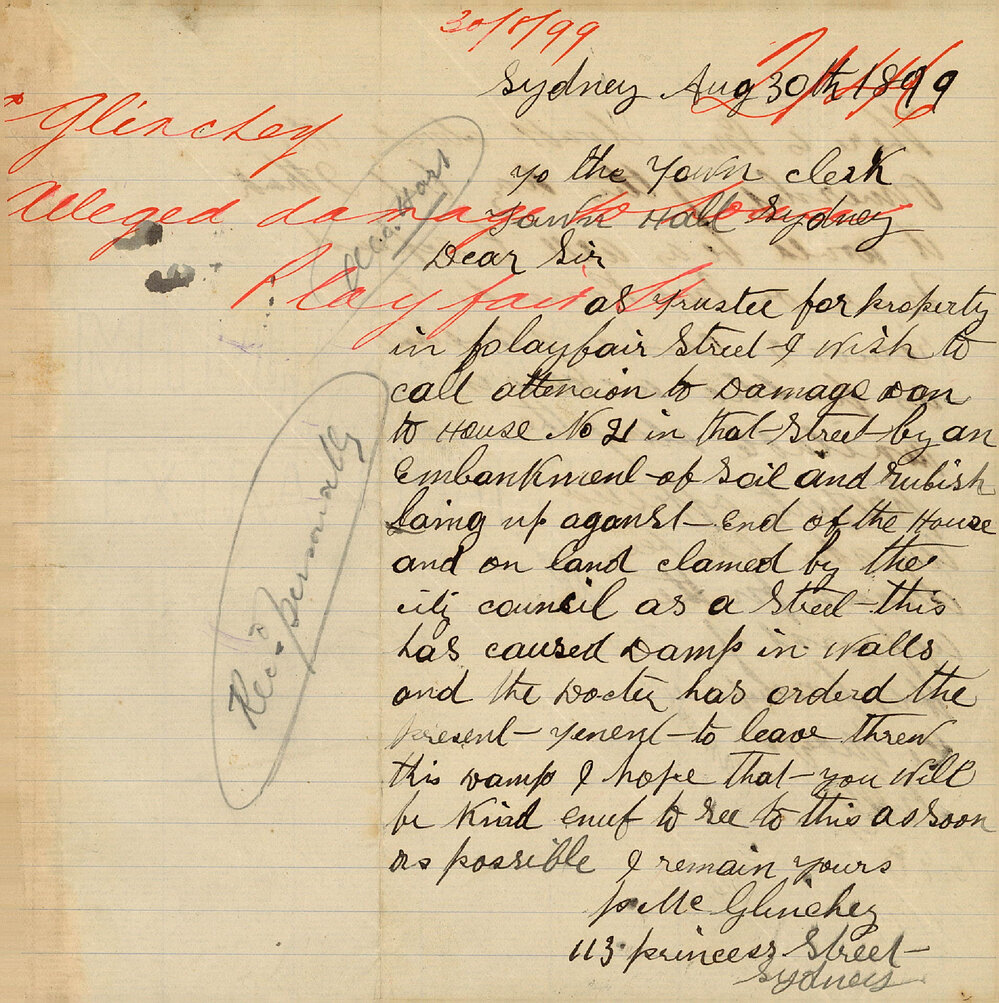 30/8/99
Sydney Aug 30th 1899
Glinchey
Alleged damage to
Playfair St
to the Town clerk
Town Hall Sydney
Dear Sir
as trustee for property
in playfair Street I wish to
call attencion to Damage don
to House No 21 in that Street by an
Embankment of soil and rubish
laing up aganst end of the House
and on land clamed by the
citi council as a Street this
has caused Damp in walls
and the Docter has orderd the
present tenent to leave threw
this damp I hope that you will
be kind enuf to see to this as soon
as possible I remain yours
p Mc Glinchey
113 princess Street
Sydney
Hart
Recd Personally